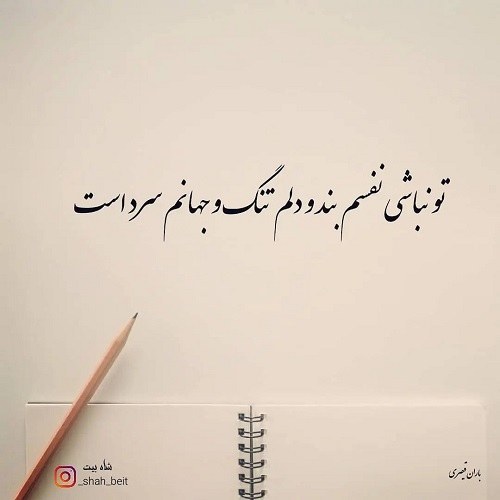 تو نباشی نفسم بند و دلم تنگ و جهانم سرد است
باران قیصری
شاه بیت
_shah_beit